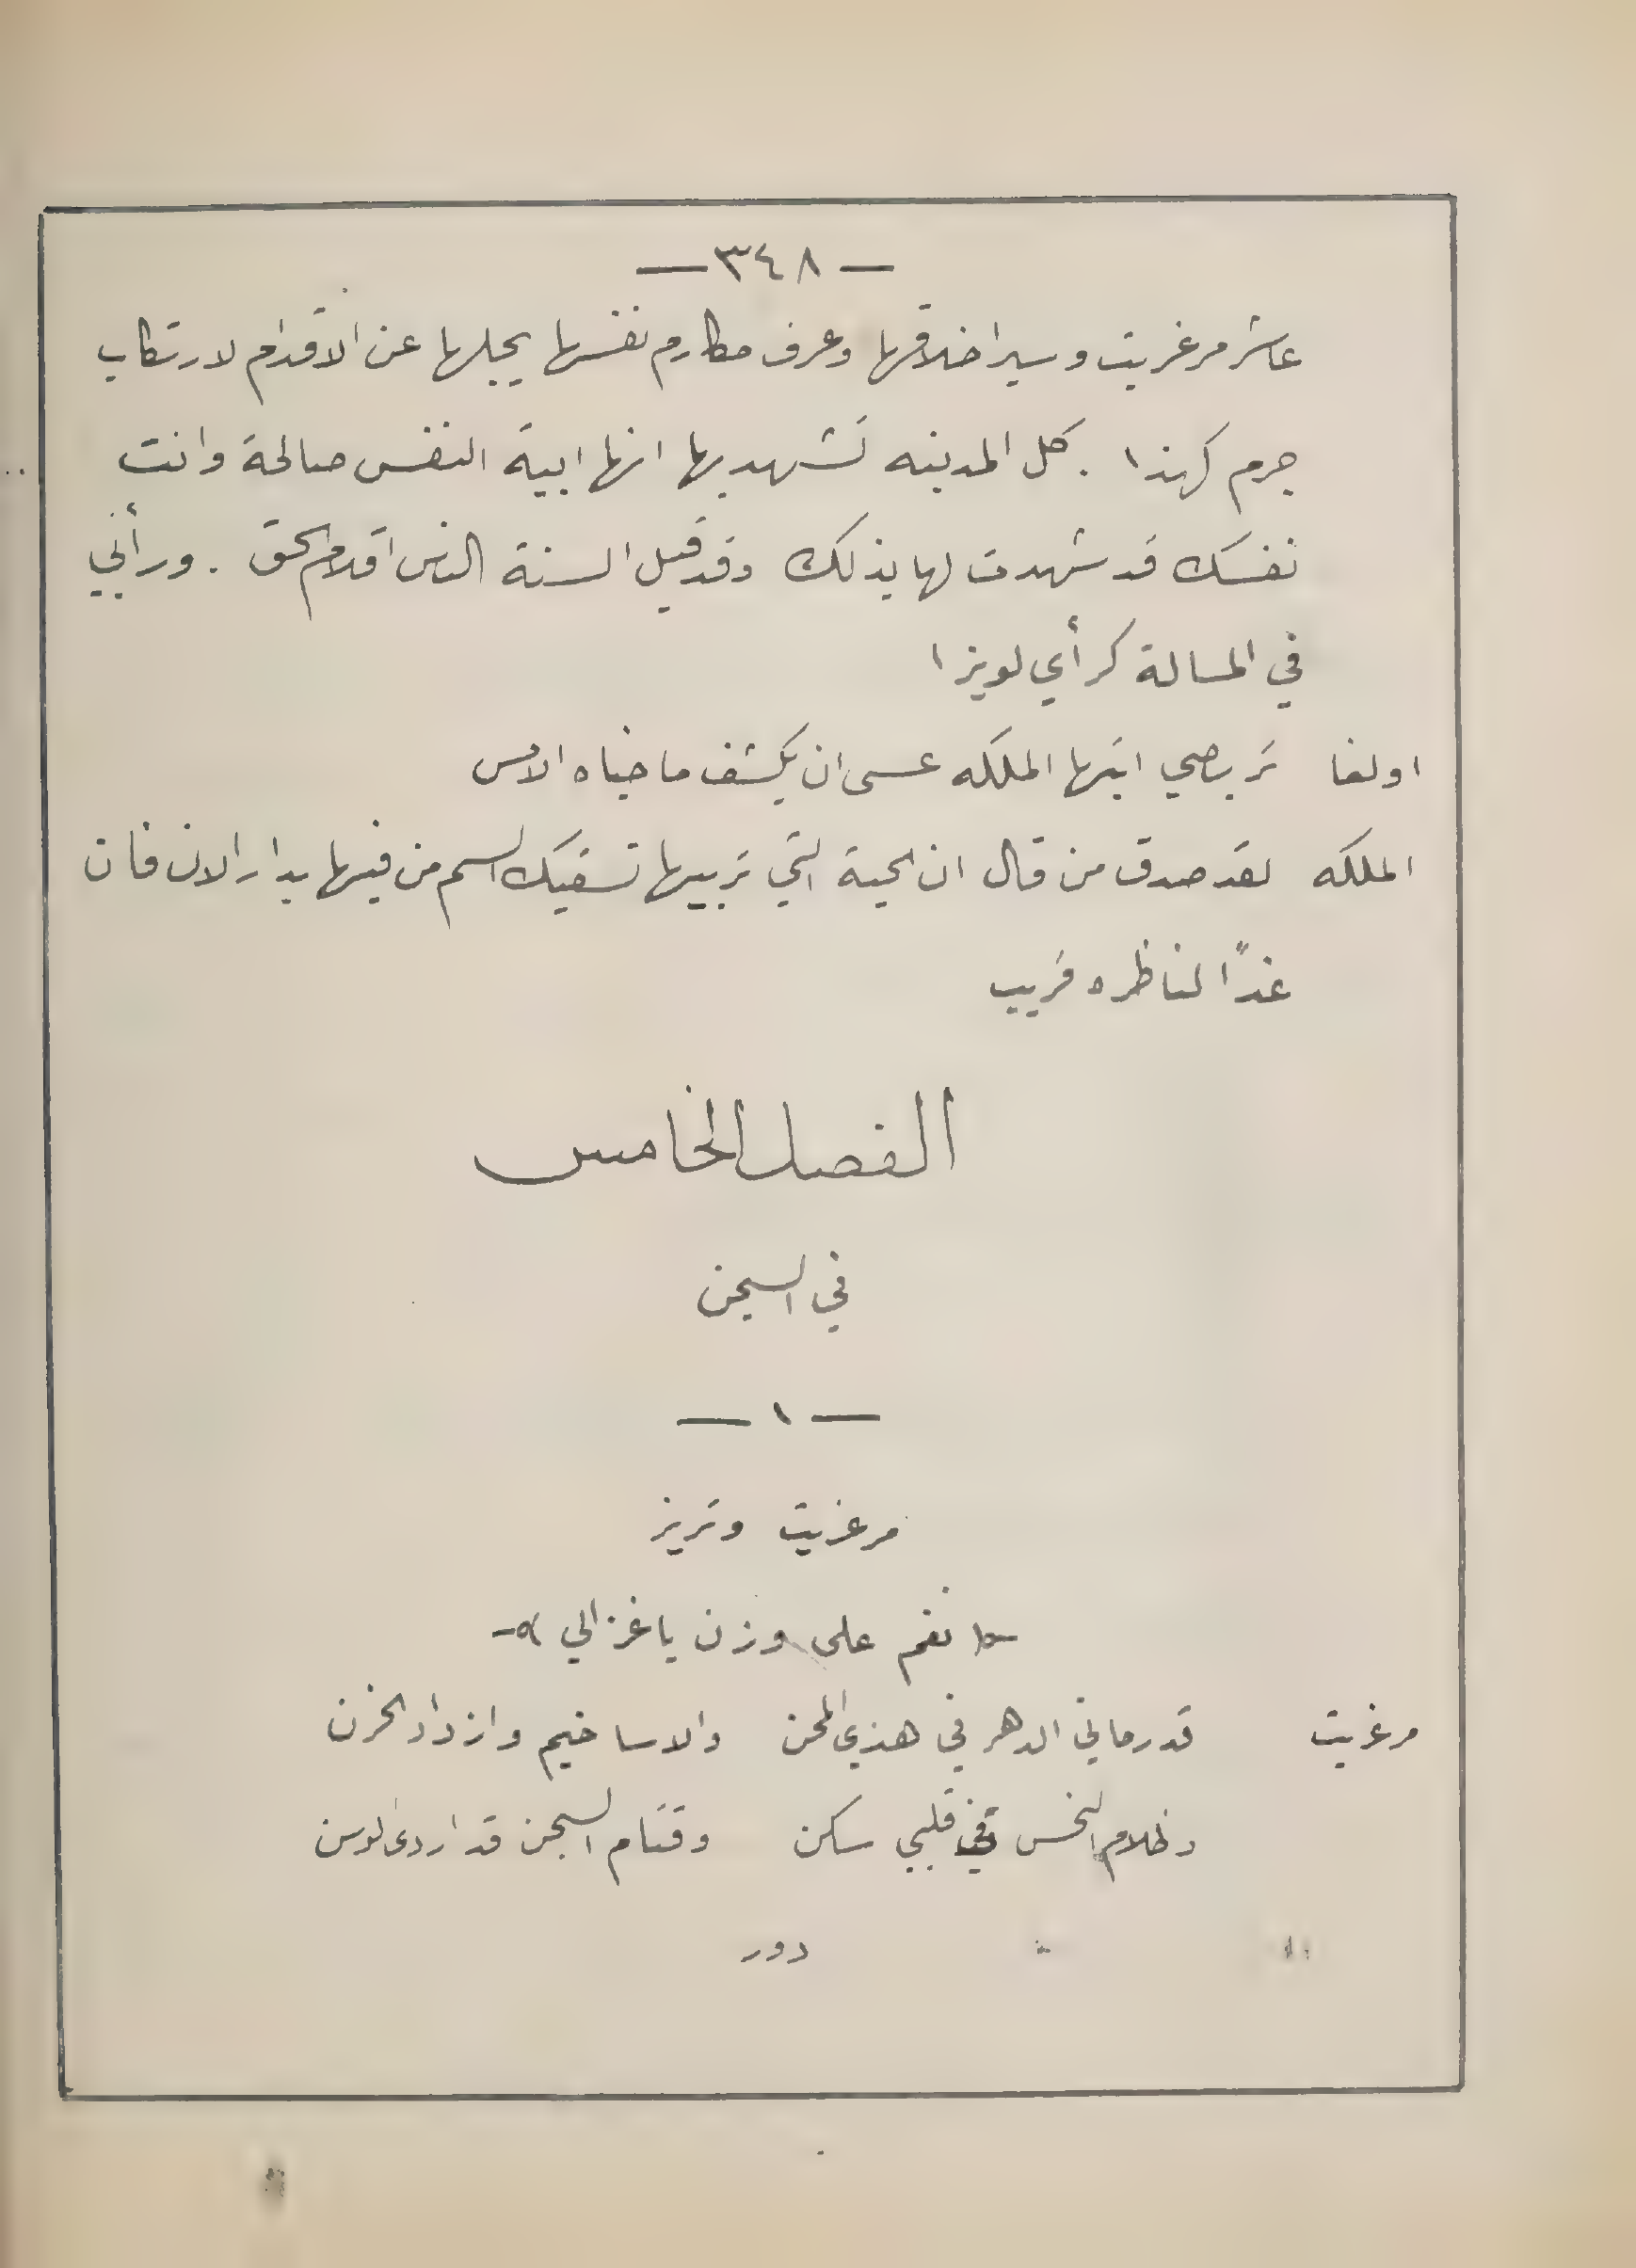 — ٣٤٨ —
عاشر مرغريت وسبر اخلاقها وعرف مكارم نفسها يجلها عن الاقدام لارتكاب
جرم كهذا . كل المدينه تشهد بها انها ابية النفس صالحة وانت
نفسك قد شهدت لها بذلك وقد قيل السنة الناس اقلام الحق . ورأيي
في المسالة كرأي لويزا
اولغا تربصي ايتها الملكه عسى ان يكشف ما خباه الامس
الملكه لقد صدق من قال ان الحية التي تربيها تسقيك السم من فيها بدار الان فان
غدًا لناظره قريب
الفصل الخامس
في السجن
— ١ —
مرغريت وتريز
نغم على وزن يا غزالي
مرغريت قد رماني الدهر في هذي المحن والاسا خيم وازداد الحزن
وظلام النحس في قلبي سكن وقتام السجن قد اردى الوسن
دور